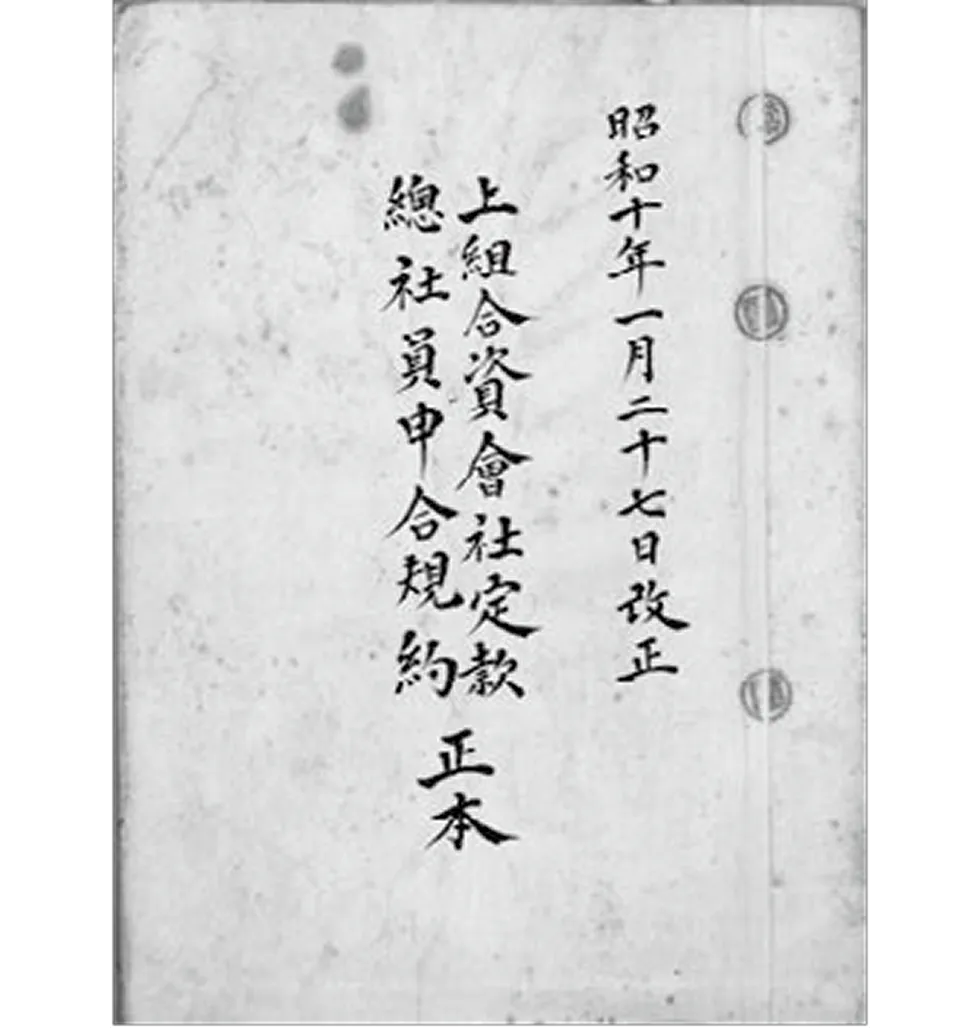 昭和十年一月二十七日改正
上組合資會社定款
總社員申合規約
正本